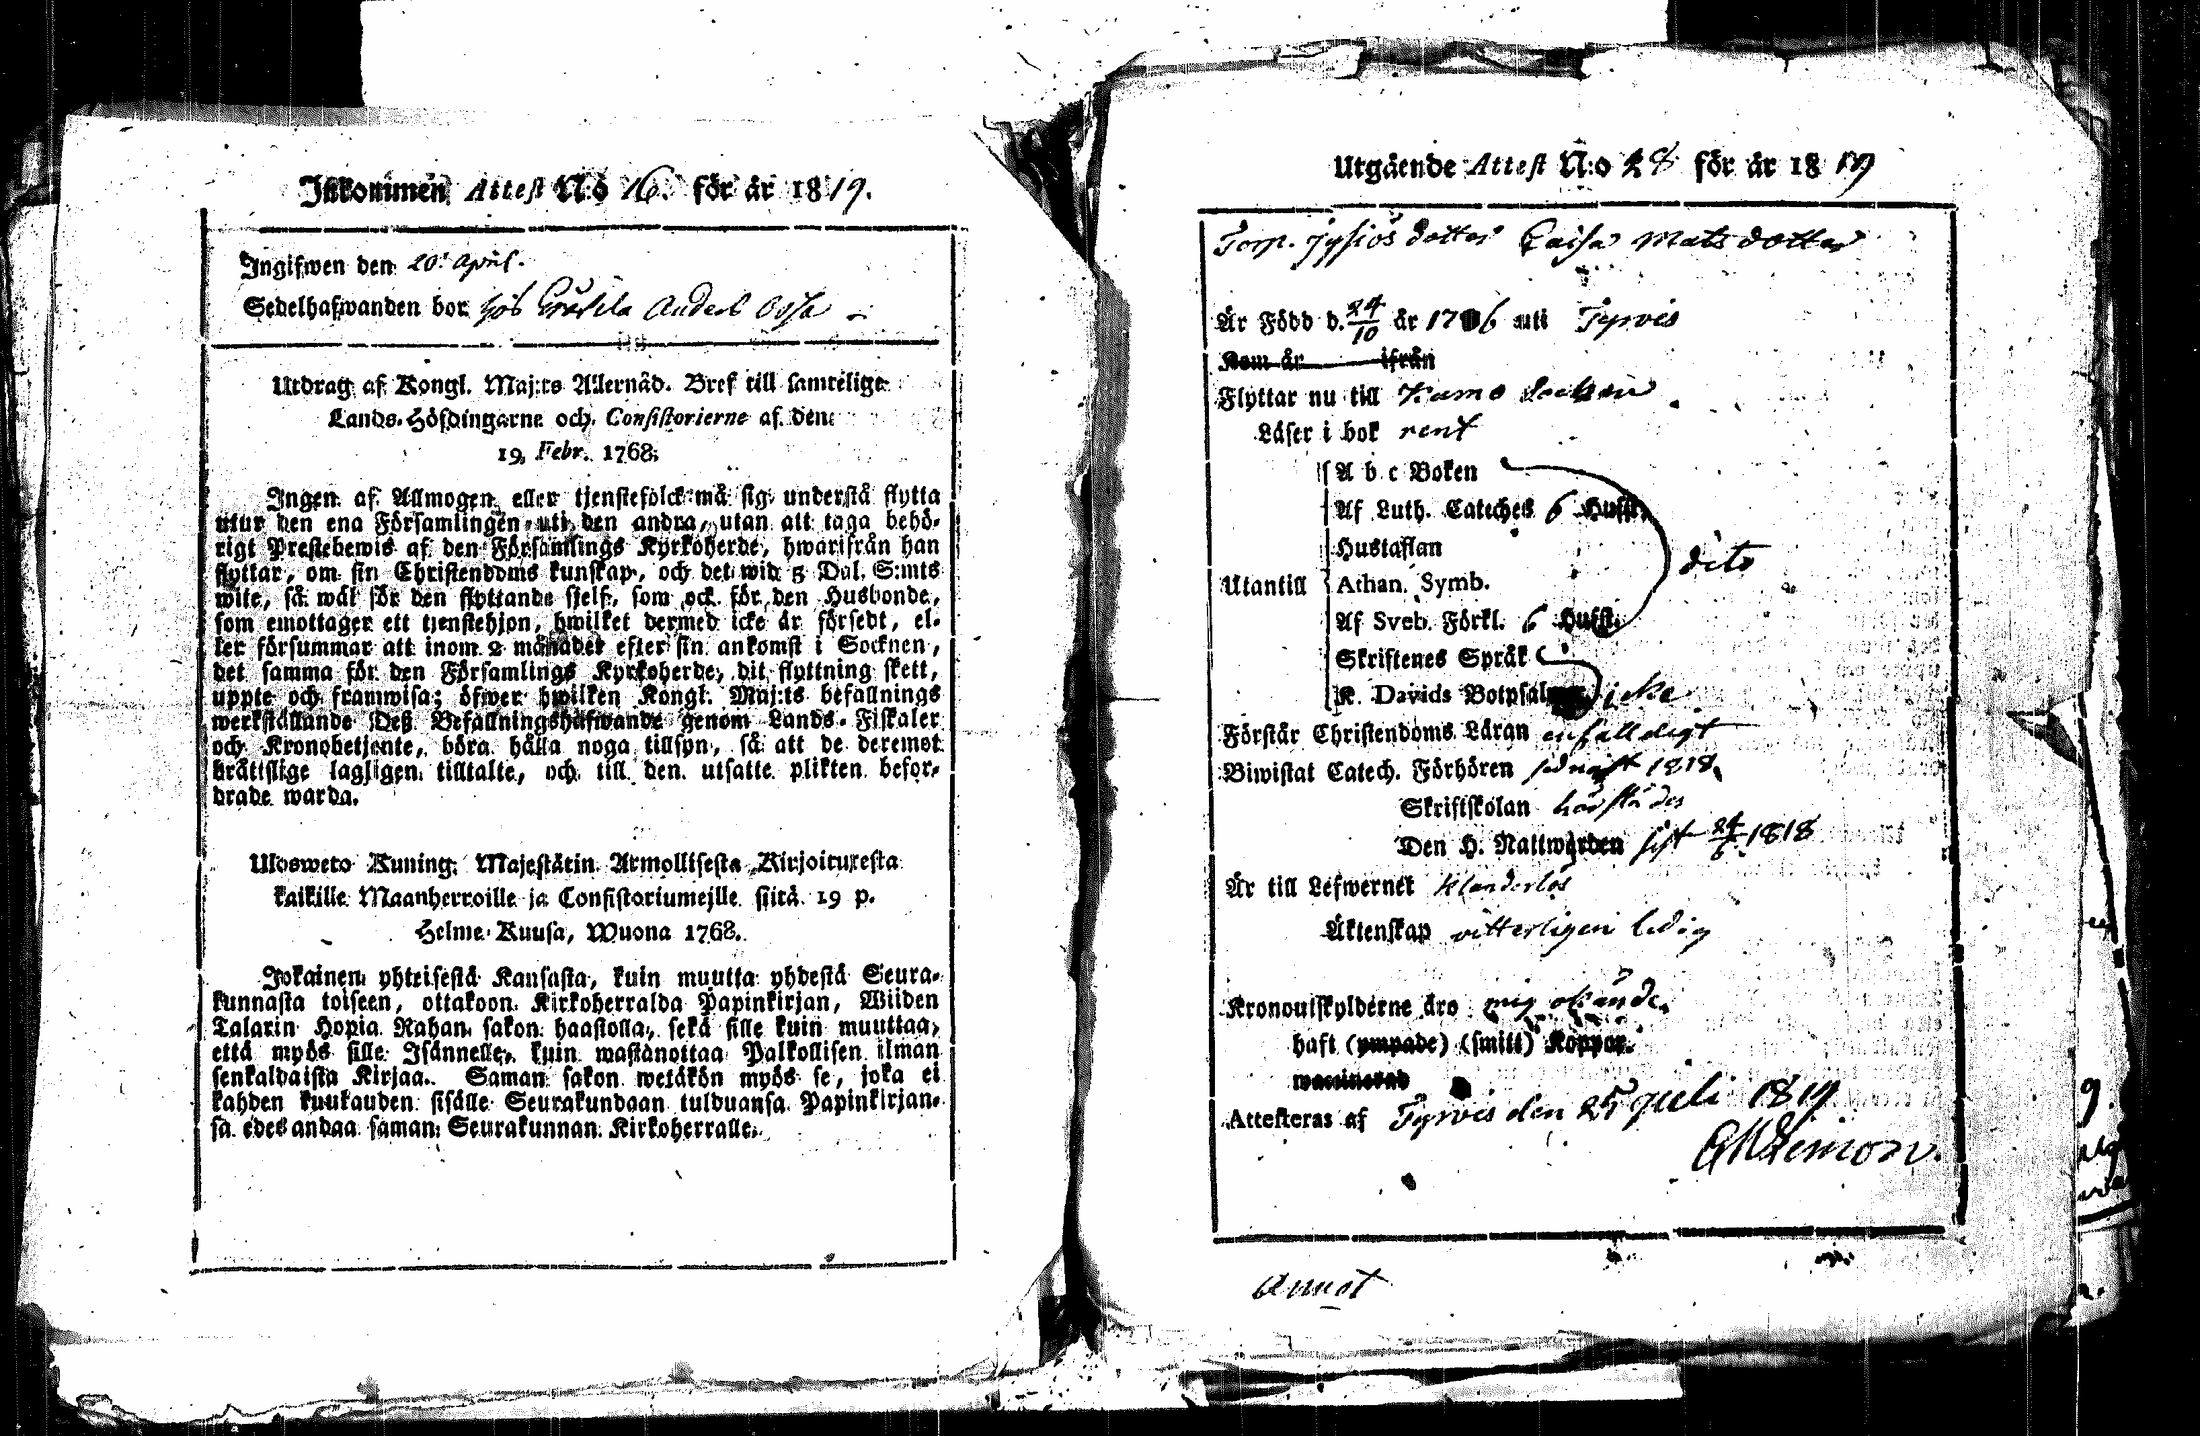 Inkommen Attest N:o 16. för år 1819.
Ingifwen den 20. April.
Sedelhafwanden bor hos Anders
Utdrag af Kongl. Maj:ts Allernåd. Bref till samtelige
Lands-Höfdingarne och Consistorierne af den
19 Febr. 1768.
Ingen af Allmogen eller tjenstefolck må sig understå flytta
utur den ena Församlingen uti den andra, utan att taga behö-
rigt Prestebewis af den Församlings Kyrkoherde, hwarifrån han
flyttar, om sin Christendoms kunskap, och det wid 5 Dal. S:mts
wite, så wäl för den flyttande sjelf, som ock för den Husbonde,
som emottager ett tjenstehjon, hwilket dermed icke är försedt, el-
ler försummar att inom 2 månader efter sin ankomst i Socknen,
det samma för den Församlings Kyrkoherde, dit flyttning skett,
uppte och framwisa; öfwer hwilken Kongl. Maj:ts befallnings
werkställande Deß Befallningshafwande genom Lands-Fiskaler
och Kronobetjente, böra hålla noga tillsyn, så att de deremot
bråttslige lagligen tilltalte, och till den utsatte plikten befor-
drade warda.
Ulosweto Kuning. Majestätin Armollisesta Kirjoituxesta
kaikille Maanherroille ja Consistoriumejlle siitä 19 p.
Helme-Kuusa, Wuona 1768.
Jokainen yhteisestä Kansasta, kuin muutta yhdestä Seura-
kunnasta toiseen, ottakoon Kirkoherralda Papinkirjan, Wiiden
Talarin Hopia Rahan sakon haastolla, sekä sille kuin muuttaa,
että myös sille Isännelle, kuin wastanottaa Palkollisen ilman
senkaldaista Kirjaa. Saman sakon wetäkön myös se, joka ei
kahden kuukauden sisälle Seurakundaan tulduansa Papinkirjan-
sa edesandaa saman Seurakunnan Kirkoherralle.
Utgående Attest N:o 28 för år 1819
Torp. dotter Caisa Matsdotter
Är Född d. 24/10 år 17 6 uti Tyrvis
Kom år ifrån
Flyttar nu till Kumo Socken
Läser i bok rent
A b c Boken
Af Luth. Cateches 6 Hufst.
Hustaflan
dito
Utantill Athan. Symb.
Af Sveb. Förkl. 6 Hufst.
Skriftenes Språk
K. Davids Botpsalmer icke
Förstår Christendoms Läran enfalldigt
Biwistat Catech. Förhören sednast 1818.
Skriftskolan härstädes
Den H. Nattwarden sist 24/6 1818
Är till Lefwernet klanderlös
Äktenskap vitterligen ledig
Kronoutskylderne äro mig okände.
haft (ympade) (smitt) Koppor.
waccinerad
Attesteras af Tyrvis den 25 Juli 1819